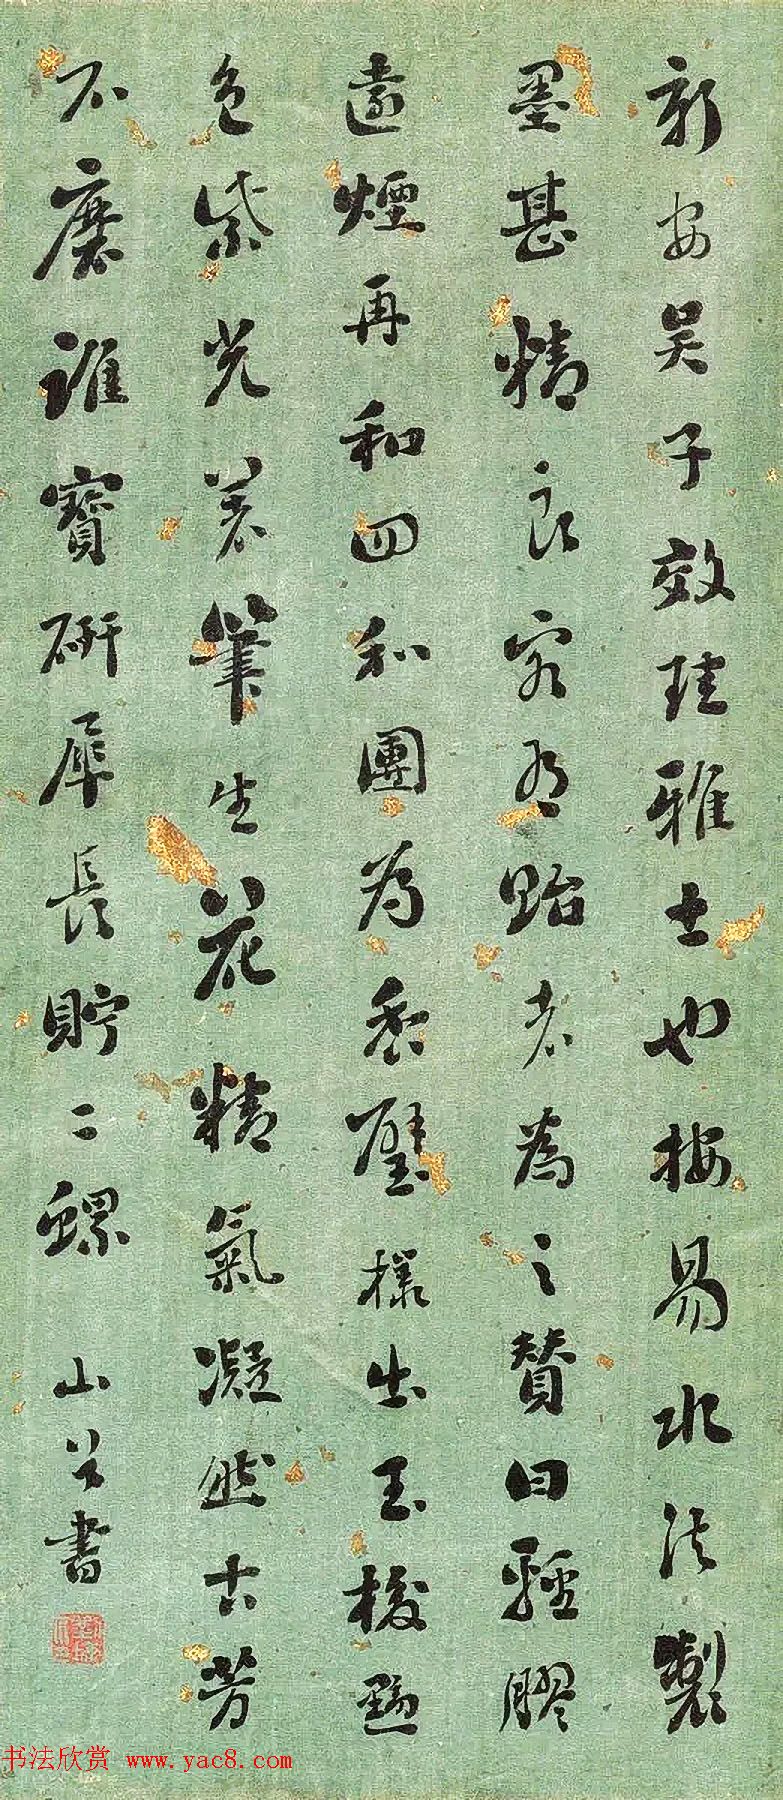 新安吴子效珪雅士也按易水法製
墨甚精良客有貽者為之贊曰輕膠
遠煙再和四和團為香璧樣出玉梭點
色紫光若筆生花精氣凝然古芳
不磨誰寶研犀長貯二螺
山谷書
书法欣赏 www.yac8.com